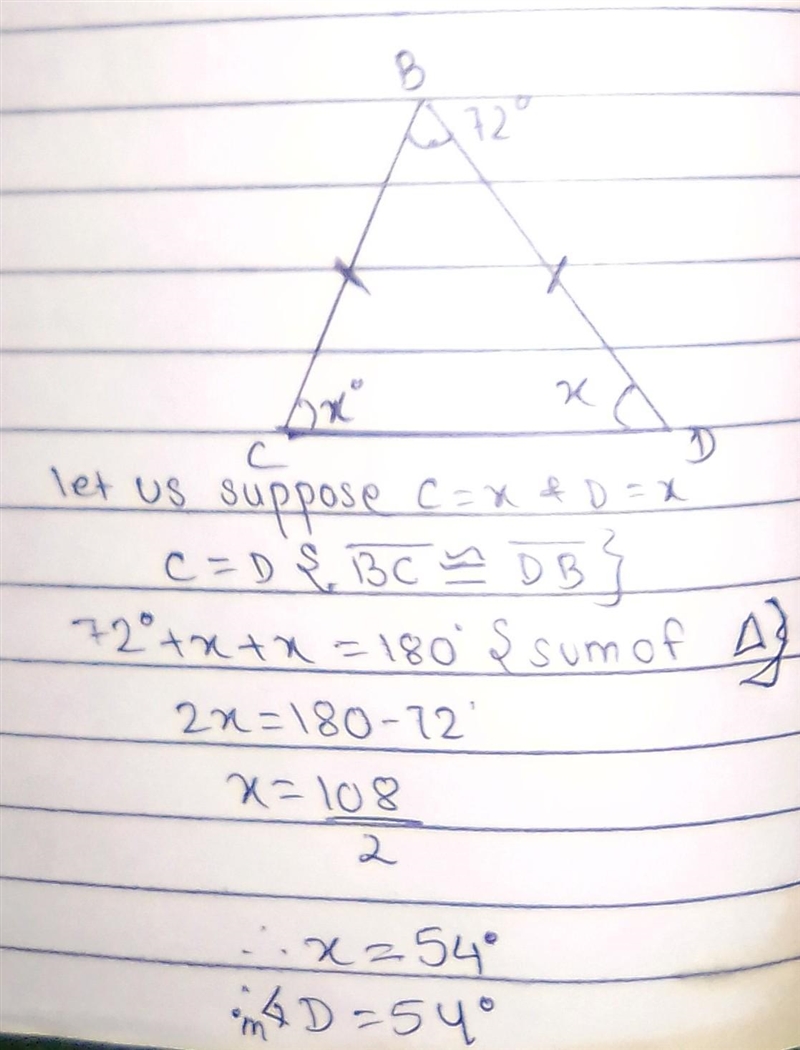 B
72°
x° x
C D
let us suppose C = x & D = x
C = D {. BC ≅ DB }
72° + x + x = 180° { sum of Δ}
2x = 180 - 72°
x = 108
2
∴ x = 54°
∴ m∡ D = 54°